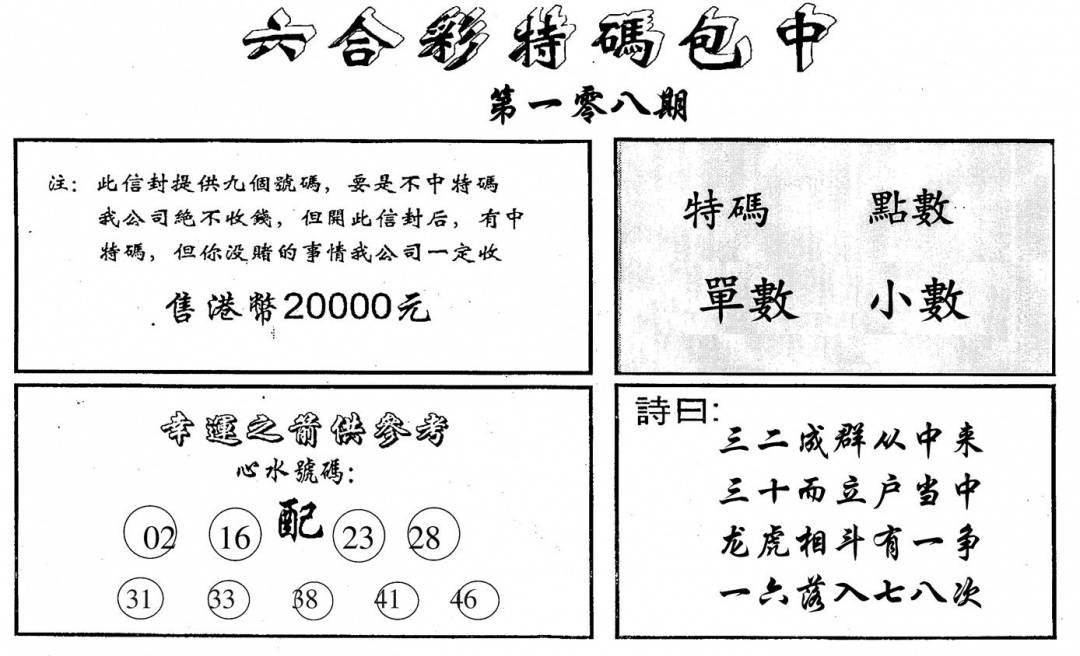 六合彩特碼包中
第一零八期
注：此信封提供九個號碼，要是不中特碼
我公司絶不收錢，但開此信封后，有中
特碼，但你没賭的事情我公司一定收
售港幣20000元
特碼 點數
單數 小數
幸運之箭供參考
心水號碼：
02 16 配 23 28
31 33 38 41 46
詩曰：
三二成群从中来
三十而立户当中
龙虎相斗有一争
一六落入七八次